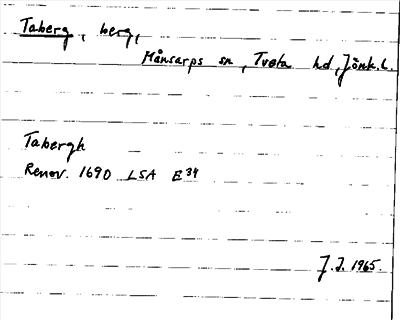 Taberg, berg,
Månsarps sn, Tveta hd, Jönk.l.
Tabergh
Renov. 1690 LSA E34
J.J. 1965.